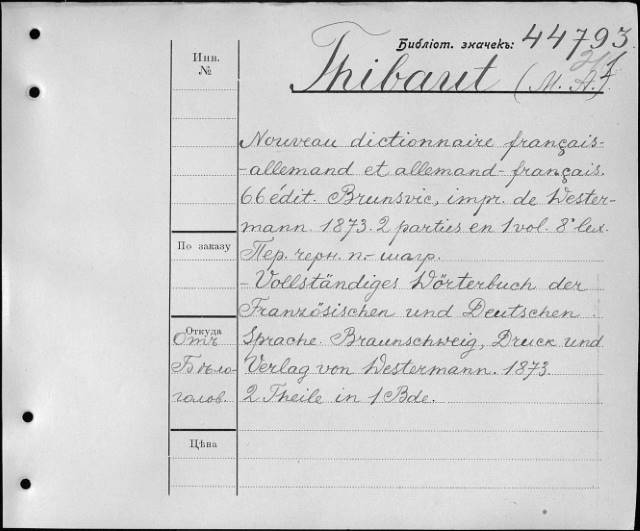 Библіот. значекъ: 44793.
Инв. №
Thibaut (M. A.)
Nouveau dictionnaire français-
-allemand et allemand-français.
66 édit. Brunsvic, impr. de Wester-
mann. 1873. 2 parties en 1 vol. 8° lex.
По заказу
Пер. черн. п.-шагр.
- Vollständiges Wörterbuch der
Französischen und Deutschen
Откуда
Отъ
Бѣло-
голов.
Sprache. Braunschweig, Druck und
Verlag von Westermann. 1873.
2 Theile in 1 Bde.
Цѣна